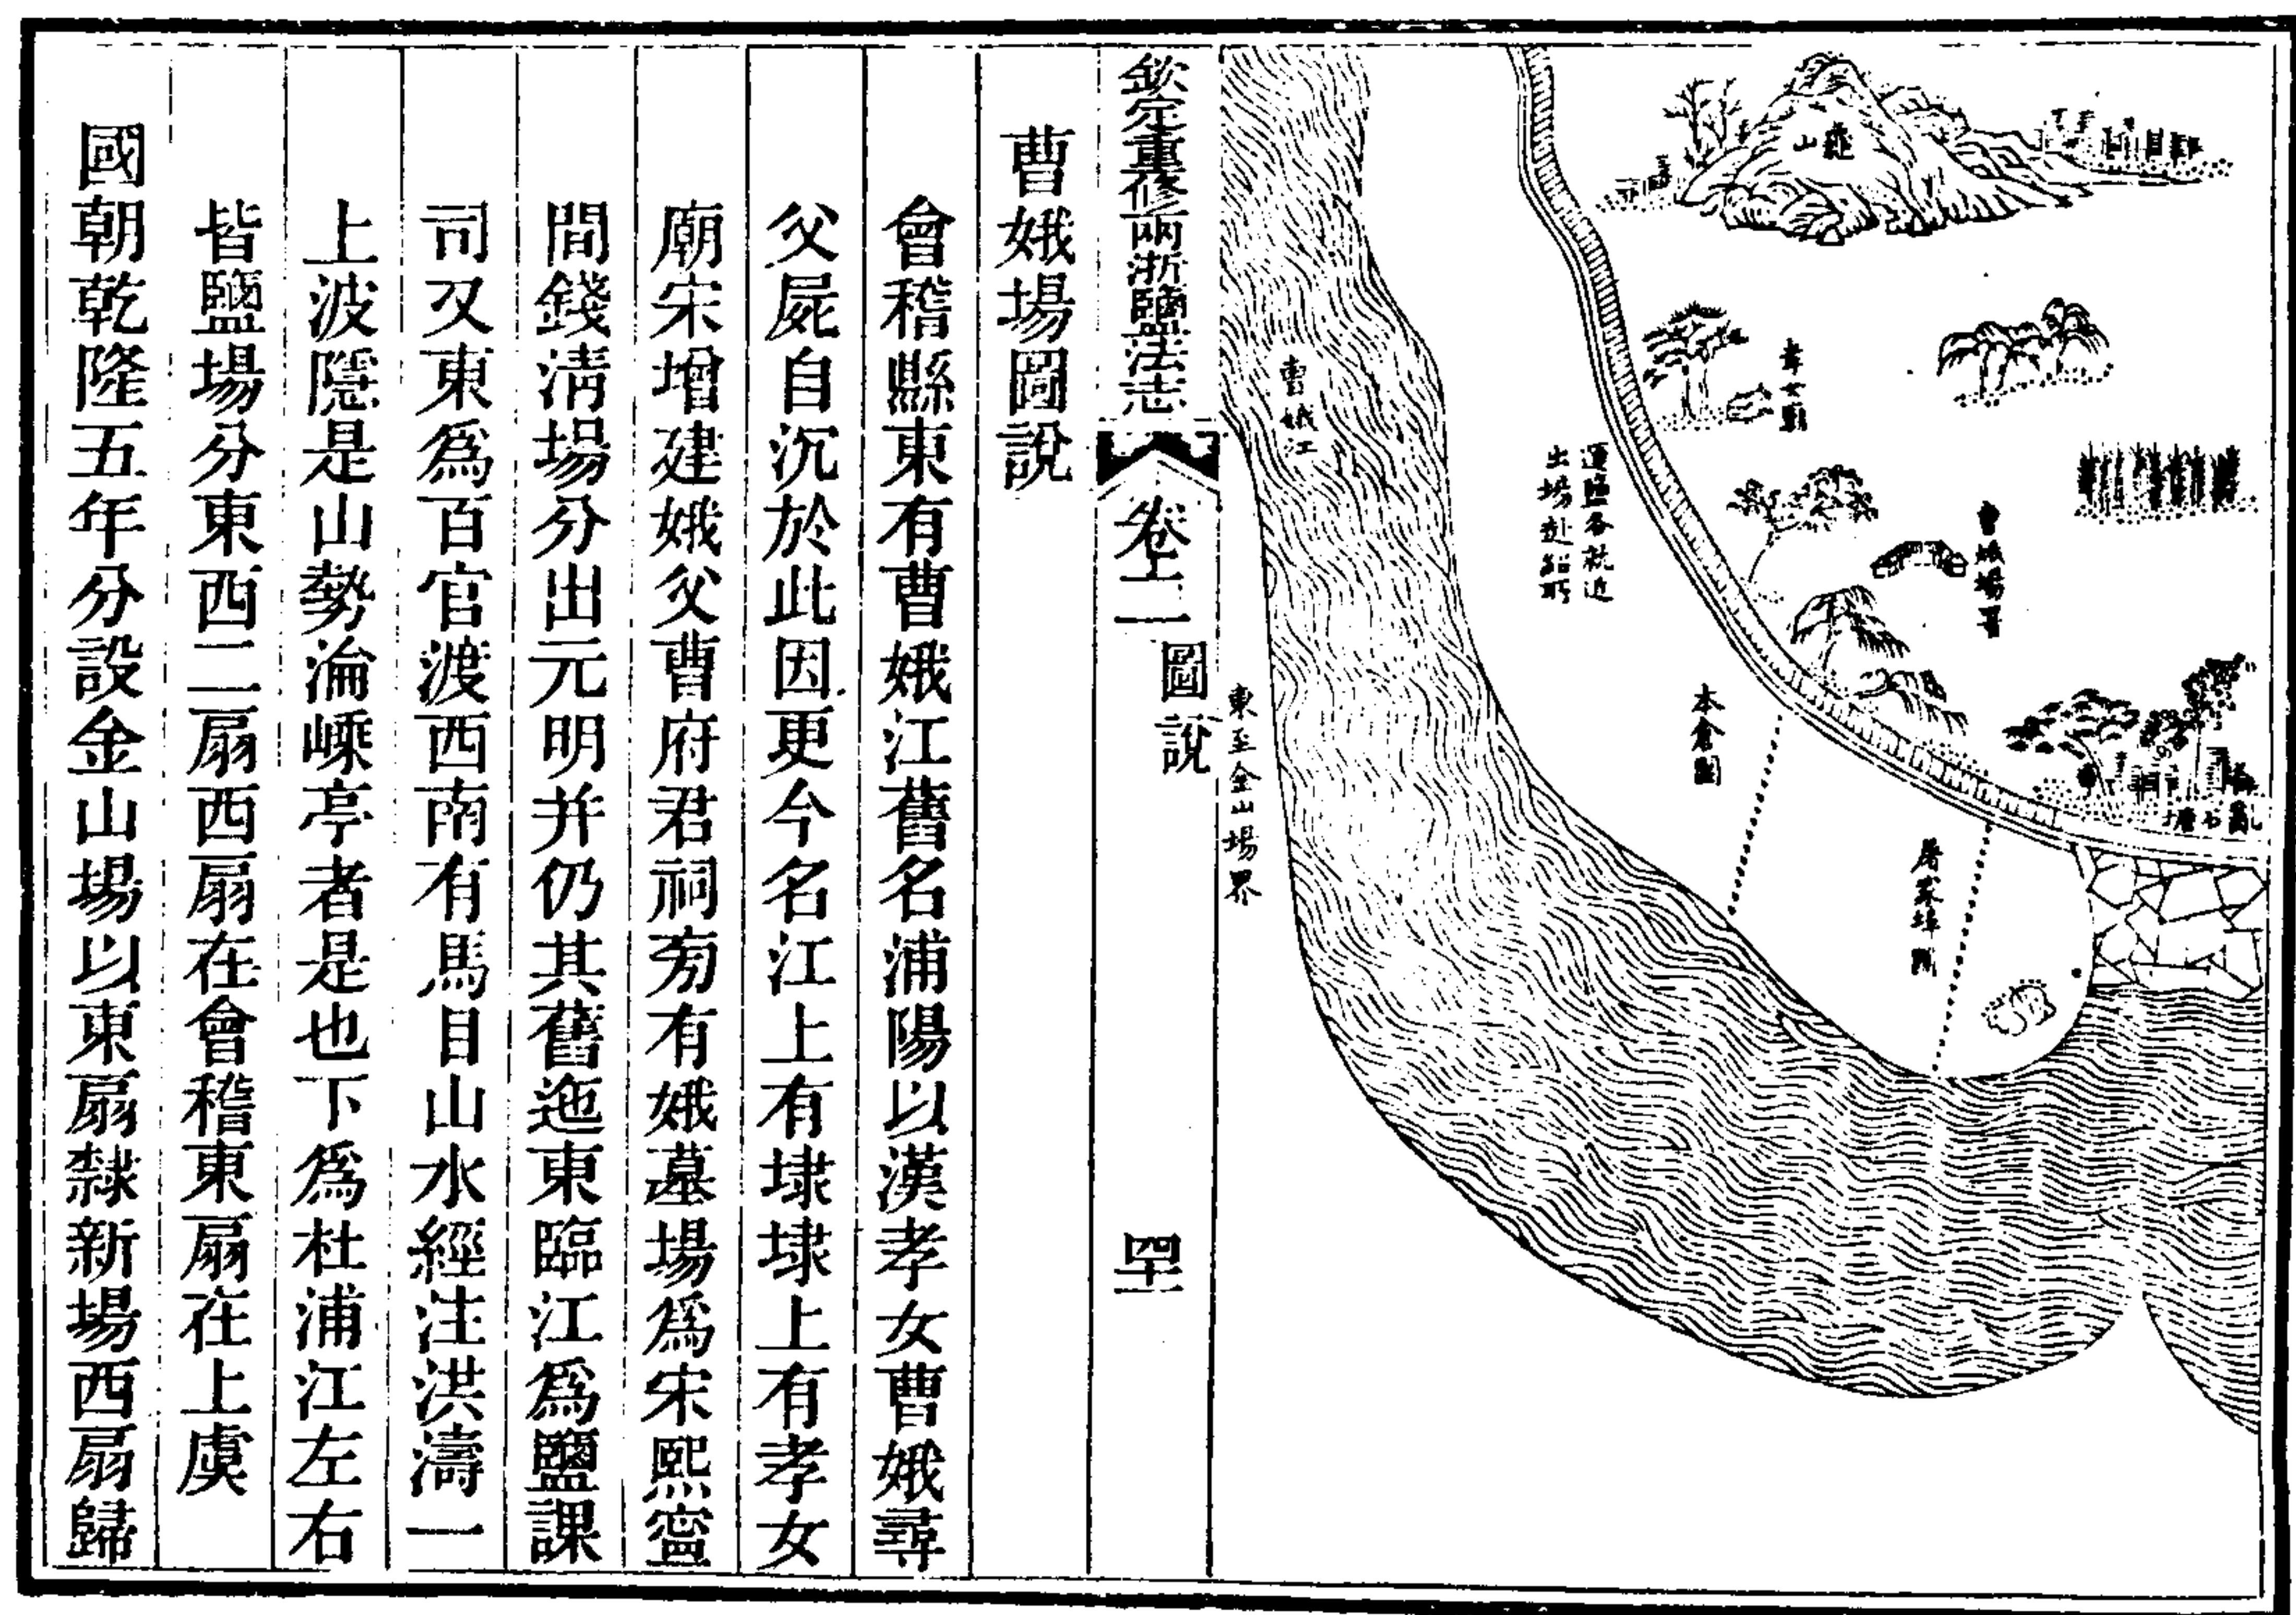 山龜
孝女廟
運鹽各就近
出場赴紹所
曹娥場署
本倉團
屠家埠團
曹娥江
東至金山場界
欽定重修兩浙鹽法志
卷二
圖說
四十一
曹娥場圖說
會稽縣東有曹娥江舊名浦陽以漢孝女曹娥尋
父屍自沉於此因更今名江上有埭埭上有孝女
廟宋增建娥父曹府君祠旁有娥墓場為宋熙寧
間錢清場分出元明并仍其舊迤東臨江為鹽課
司又東為百官渡西南有馬目山水經注洪濤一
上波隱是山勢淪嵊亭者是也下為杜浦江左右
皆鹽場分東西二扇西扇在會稽東扇在上虞
國朝乾隆五年分設金山場以東扇隸新場西扇歸